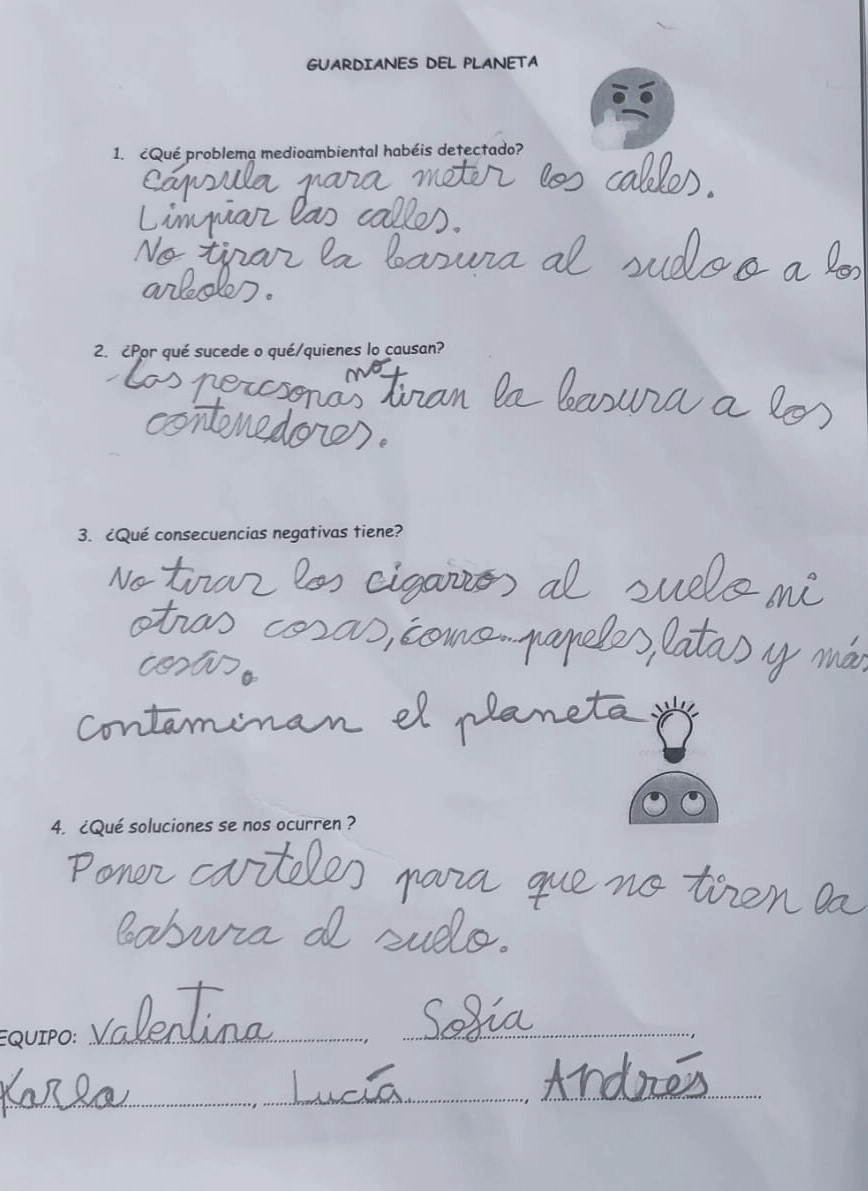 GUARDIANES DEL PLANETA
1. ¿Qué problema medioambiental habéis detectado?
Cápsula para meter los cables.
Limpiar las calles.
No tirar la basura al suelo o a los
arboles.
2. ¿Por qué sucede o qué/quienes lo causan?
-Las percsonas no tiran la basura a los
contenedores.
3. ¿Qué consecuencias negativas tiene?
No tirar los cigarros al suelo ni
otras cosas, como... papeles, latas y más
cosas.
contaminan el planeta
4. ¿Qué soluciones se nos ocurren ?
Poner carteles para que no tiren la
basura al suelo.
EQUIPO: Valentina, Sofía,
Karla, Lucía, Andrés